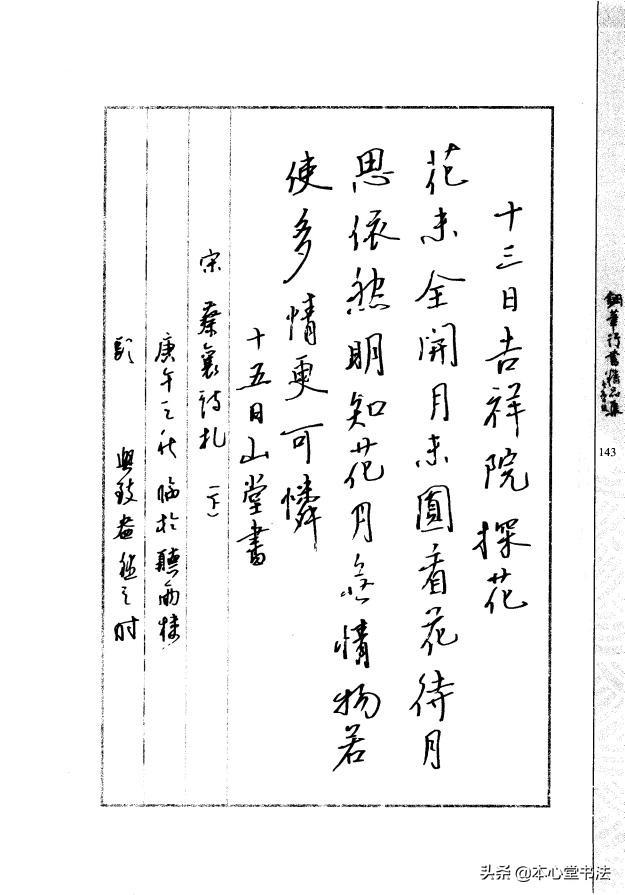 十三日吉祥院探花
花未全開月未圓看花待月
思依然明知花月無情物若
使多情更可憐
十五日山堂書
宋 蔡襄詩札(下)
庚午之秋臨於聽雨樓
頭 興致盎然之時
鋼筆行書精品集
143
头条 @本心堂书法